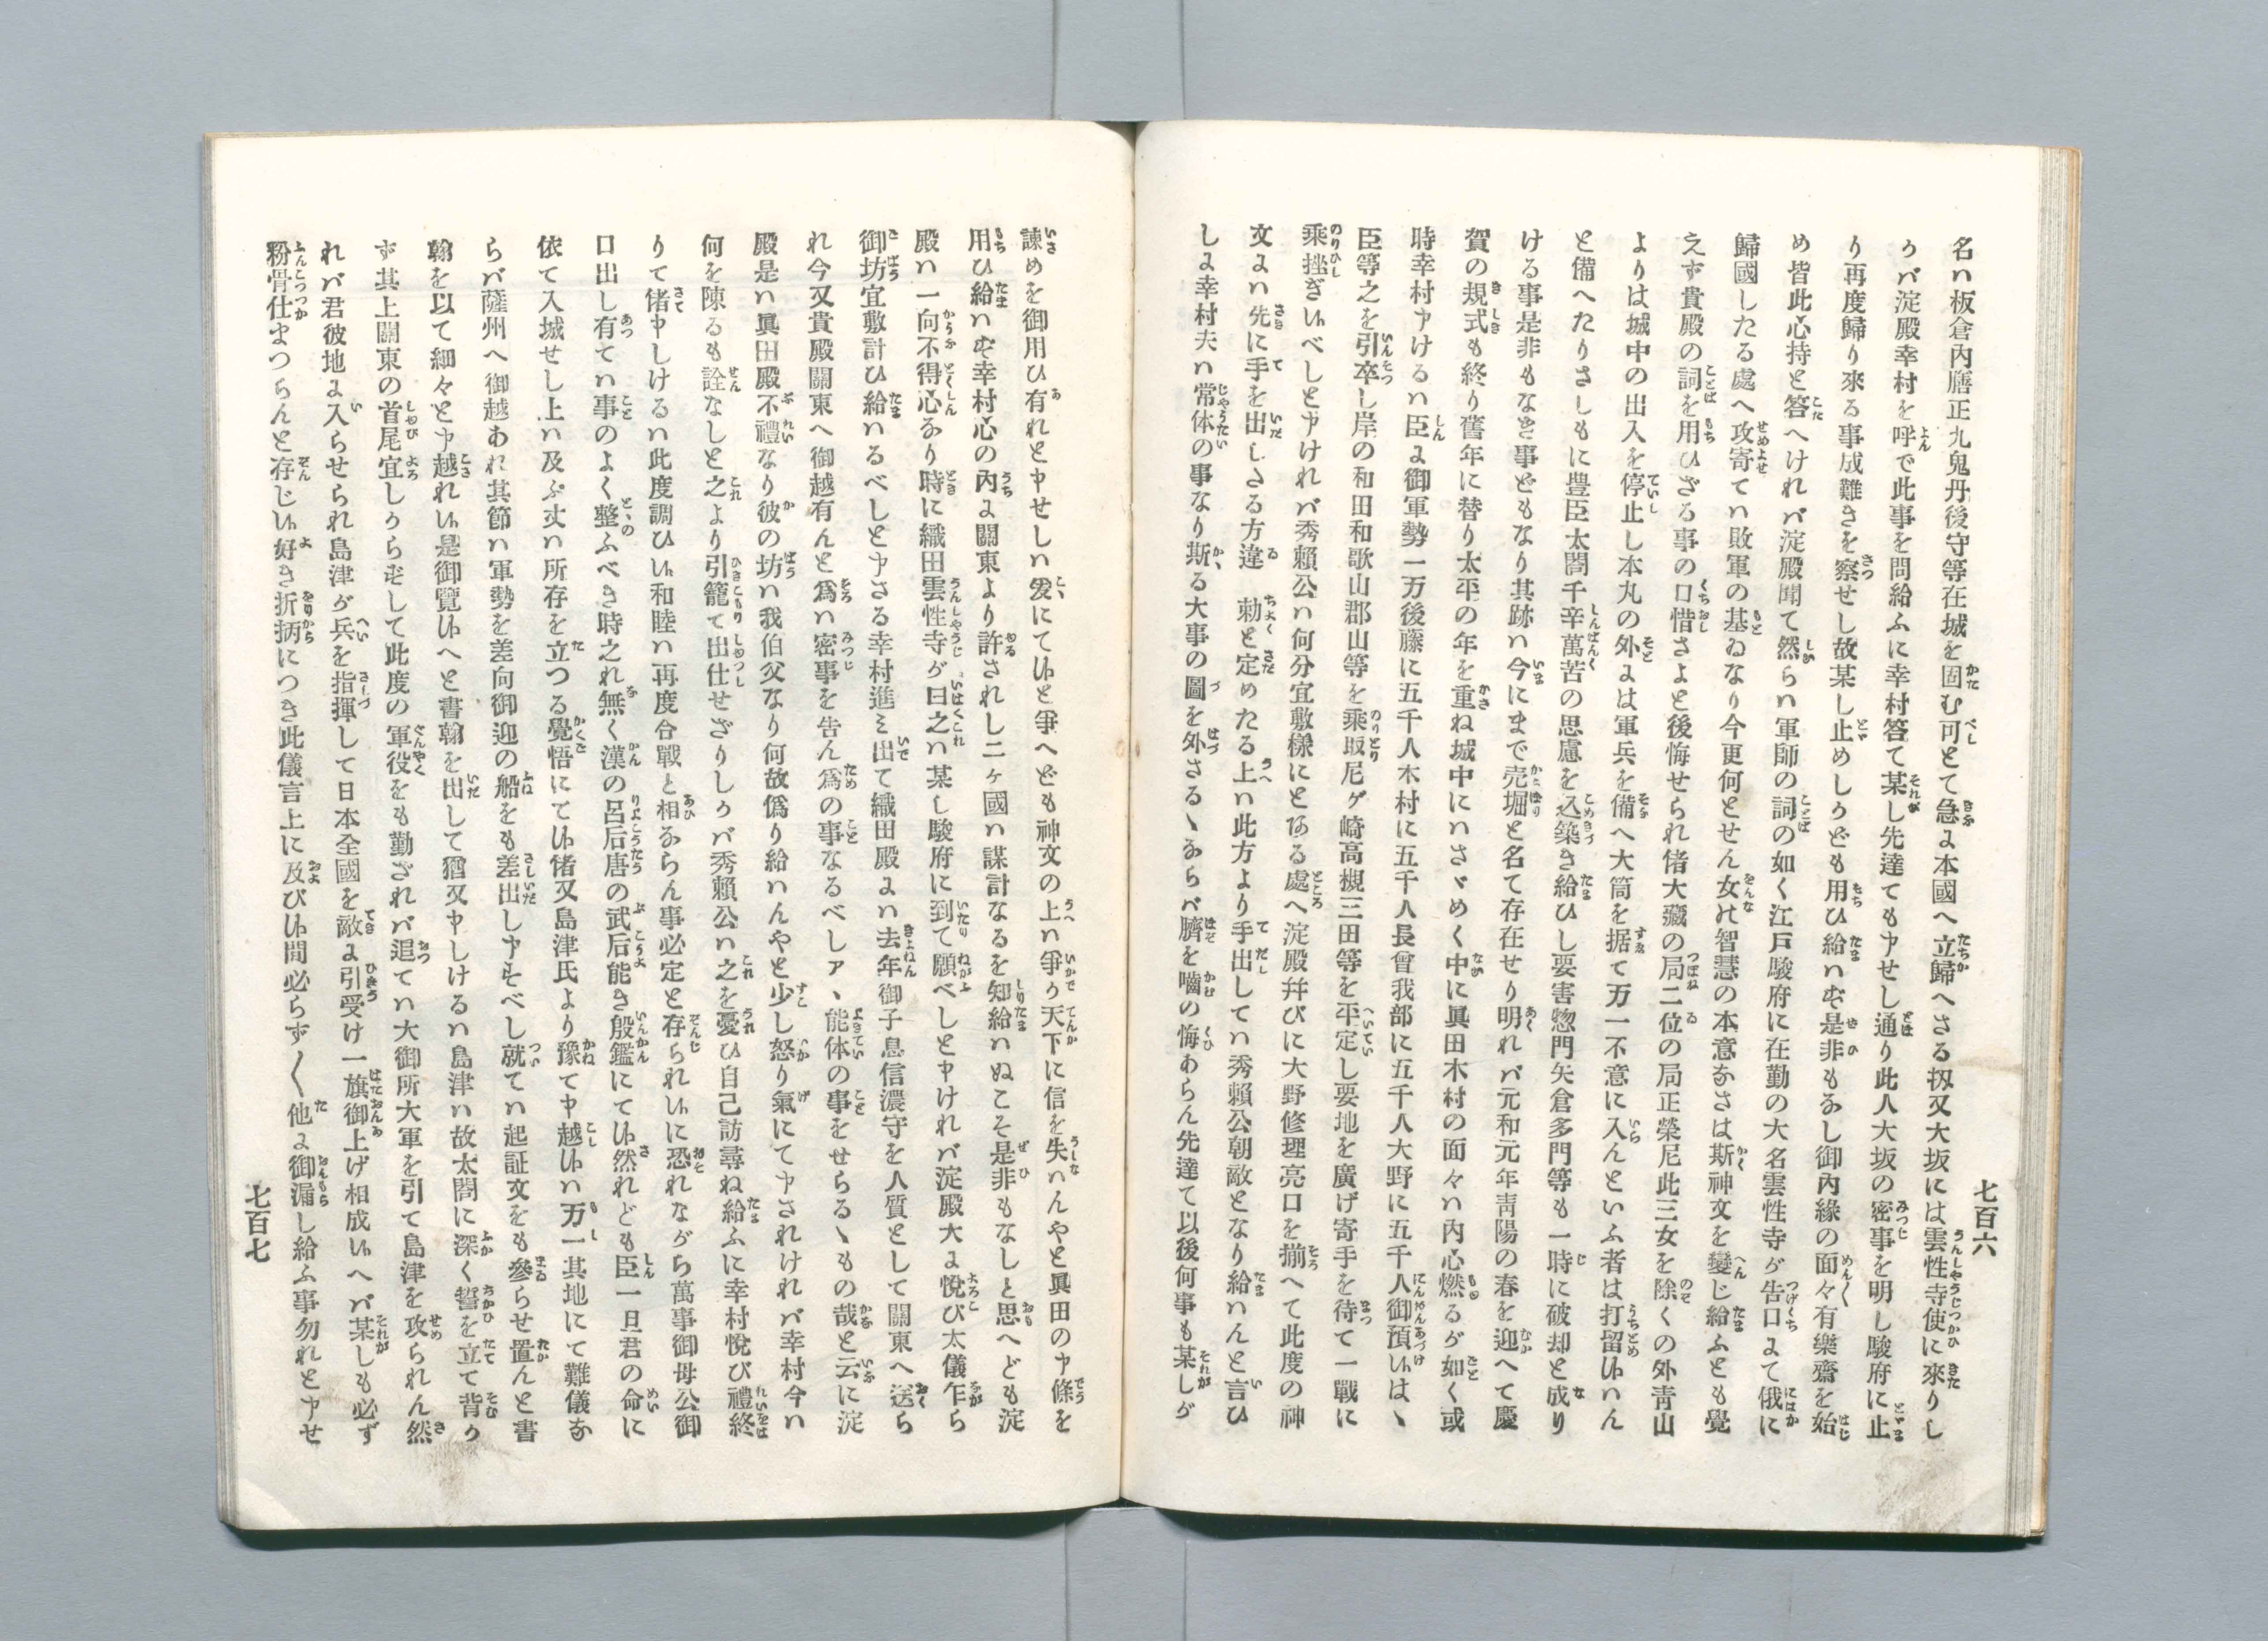 七百六
名ハ板倉内膳正九鬼丹後守等在城を固む可とて急に本國へ立歸へさる扨又大坂には雲性寺使に來りし
かバ淀殿幸村を呼で此事を問給ふに幸村答て某し先達ても申せし通り此人大坂の密事を明し駿府に止
り再度歸り來る事成難きを察せし故某し止めしかども用ひ給ハず是非もなし御内緣の面々有樂齋を始
め皆此心持と答へけれバ淀殿聞て然らハ軍師の詞の如く江戸駿府に在勤の大名雲性寺が告口にて俄に
歸國したる處へ攻寄てハ敗軍の基ゐなり今更何とせん女の智慧の本意なさは斯神文を變じ給ふとも覺
えず貴殿の詞を用ひざる事の口惜さよと後悔せられ偖大藏の局二位の局正榮尼此三女を除くの外青山
よりは城中の出入を停止し本丸の外には軍兵を備へ大筒を据て万一不意に入んといふ者は打留いハん
と備へたりさしもに豊臣太閤千辛萬苦の思慮を込築き給ひし要害惣門矢倉多門等も一時に破却と成り
ける事是非もなき事どもなり其跡ハ今にまで売堀と名て存在せり明れバ元和元年青陽の春を迎へて慶
賀の規式も終り舊年に替り太平の年を重ね城中にハさゞめく中に眞田木村の面々ハ内心燃るが如く或
時幸村申けるハ臣に御軍勢一万後藤に五千人木村に五千人長曾我部に五千人大野に五千人御預いはゝ
臣等之を引卒し岸の和田和歌山郡山等を乘取尼ヶ崎高槻三田等を平定し要地を廣げ寄手を待て一戰に
乘挫ぎいべしと申けれバ秀賴公ハ何分宜敷樣にとある處へ淀殿幷びに大野修理亮口を揃へて此度の神
文にハ先に手を出しさる方違　勅と定めたる上ハ此方より手出してハ秀賴公朝敵となり給ハんと言ひ
しに幸村夫ハ常体の事なり斯る大事の圖を外さるゝならバ臍を嚙の悔あらん先達て以後何事も某しが
諫めを御用ひ有れと申せしハ爰にていと爭へども神文の上ハ爭か天下に信を失ハんやと眞田の申條を
用ひ給ハず幸村心の内に關東より許されし二ヶ國ハ謀計なるを知給ハぬこそ是非もなしと思へども淀
殿ハ一向不得心なり時に織田雲性寺が曰之ハ某し駿府に到て願べしと申けれバ淀殿大に悅び太儀乍ら
御坊宜敷計ひ給ハるべしと申さる幸村進ミ出て織田殿にハ去年御子息信濃守を人質として關東へ送ら
れ今又貴殿關東へ御越有んと爲ハ密事を告ん爲の事なるべしアヽ能体の事をせらるゝもの哉と云に淀
殿是ハ眞田殿不禮なり彼の坊ハ我伯父なり何故僞り給ハんやと少し怒り氣にて申されけれバ幸村今ハ
何を陳るも詮なしと之より引籠て出仕せざりしかバ秀賴公ハ之を憂ひ自己訪尋ね給ふに幸村悅び禮終
りて偖申しけるハ此度調ひい和睦ハ再度合戰と相ならん事必定と存られいに恐れながら萬事御母公御
口出し有てハ事のよく整ふべき時之れ無く漢の呂后唐の武后能き殷鑑にてい然れども臣一旦君の命に
依て入城せし上ハ及ぶ丈ハ所存を立つる覺悟にてい偖又島津氏より豫て申越いハ万一其地にて難儀な
らバ薩州へ御越あれ其節ハ軍勢を差向御迎の船をも差出し申すべし就てハ起証文をも參らせ置んと書
翰を以て細々と申越れい是御覽いへと書翰を出して猶又申しけるハ島津ハ故太閤に深く誓を立て背か
ず其上關東の首尾宜しからずして此度の軍役をも勤ざれバ追てハ大御所大軍を引て島津を攻られん然
れバ君彼地に入らせられ島津が兵を指揮して日本全國を敵に引受け一旗御上げ相成いへバ某しも必ず
粉骨仕まつらんと存じい好き折柄につき此儀言上に及びい間必らず〱他に御漏し給ふ事勿れと申せ
七百七